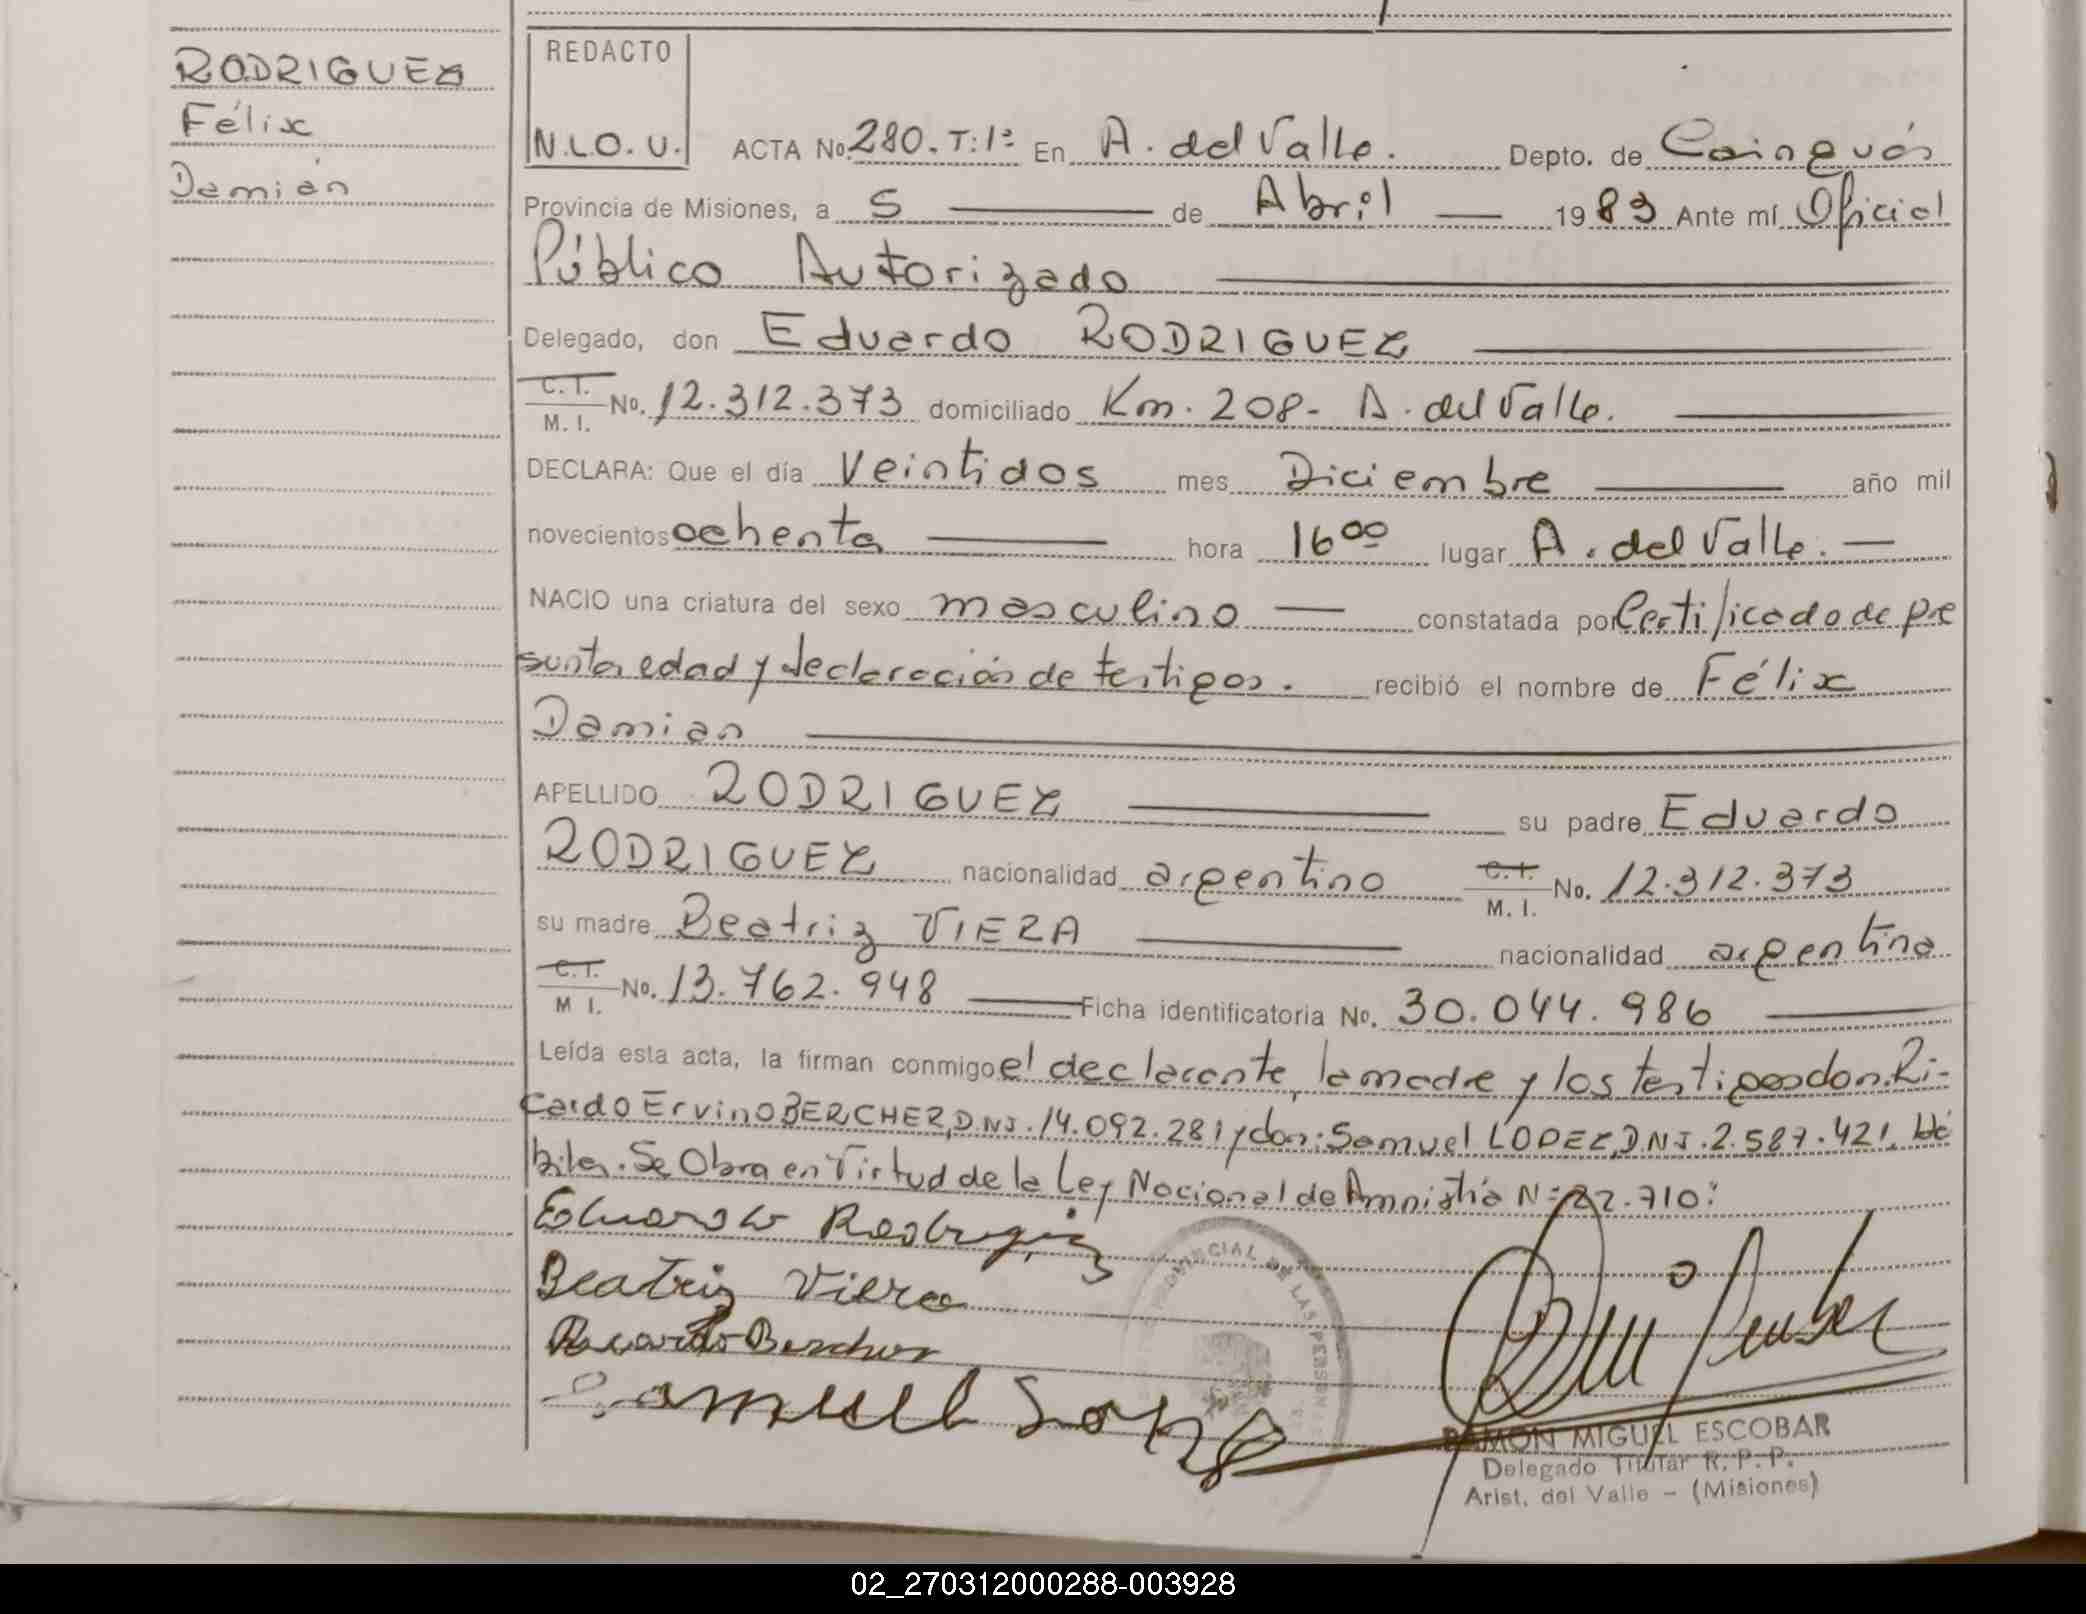 RODRIGUEZ
Félix
Damián
REDACTO
N.L.O.U.
ACTA No. 280. T: 1º En A. del Valle. Depto. de Cainguás
Provincia de Misiones, a 5 de Abril 1983 Ante mí Oficial
Público Autorizado
Delegado, don Eduardo RODRIGUEZ
C. I. / M. I. No. 12.312.373 domiciliado Km. 208- A. del Valle.
DECLARA: Que el día Veintidos mes Diciembre año mil
novecientos ochenta hora 16 00 lugar A. del Valle.
NACIO una criatura del sexo masculino constatada por Certificado de pre
sunta edad y declaración de testigos. recibió el nombre de Félix
Damian
APELLIDO RODRIGUEZ su padre Eduardo
RODRIGUEZ nacionalidad argentino C. I. / M. I. No. 12.312.373
su madre Beatriz VIERA nacionalidad argentina
C. I. / M I. No. 13.762.948 Ficha identificatoria No. 30.044.986
Leída esta acta, la firman conmigo el declarante, la madre y los testigos don. Ri-
cardo Ervino BERCHER, D.NI. 14.092.281 y don: Samuel LOPEZ, D.NI. 2.587.421. Há
biles. Se Obra en Virtud de la Ley Nacional de Amnistía Nº 22.710:
Eduardo Rodriguez
Beatriz Viera
Ricardo Bercher
Samuel Lopez
PROVINCIAL DE LAS PERSONAS
RAMON MIGUEL ESCOBAR
Delegado Titular R. P. P.
Arist. del Valle - (Misiones)
02_270312000288-003928